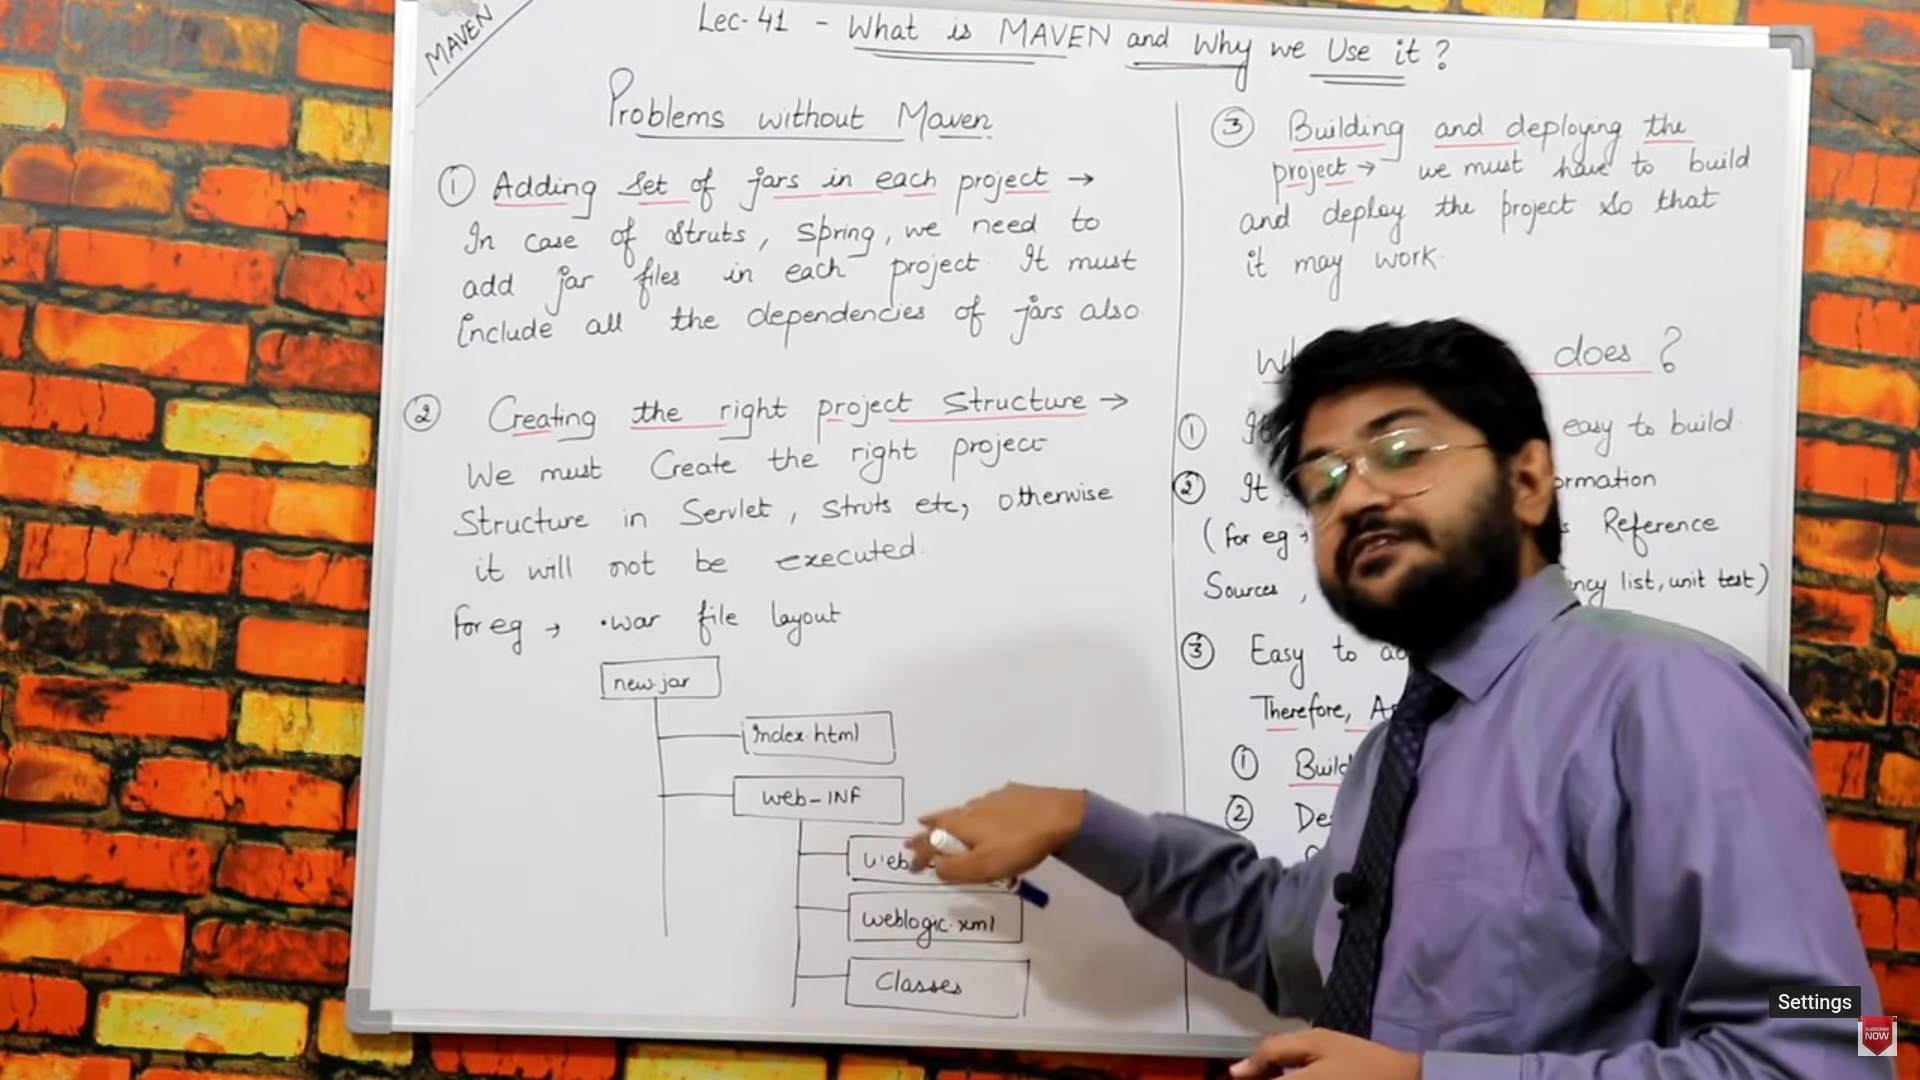 MAVEN
Lec-41 - What is MAVEN and Why we Use it?
Problems without Maven
① Adding Set of jars in each project →
In case of Struts, Spring, we need to
add jar files in each project. It must
include all the dependencies of jars also.
② Creating the right project Structure →
We must Create the right project
Structure in Servlet, Struts etc, otherwise
it will not be executed.
for eg → .war file layout
new.jar
Index.html
web-INF
web
weblogic.xml
Classes
③ Building and deploying the
project → we must have to build
and deploy the project so that
it may work.
does?
① easy to build.
② It
(for eg → Reference
Sources, list, unit test)
③ Easy to
Therefore,
①
②
Settings
SUBSCRIBE
NOW